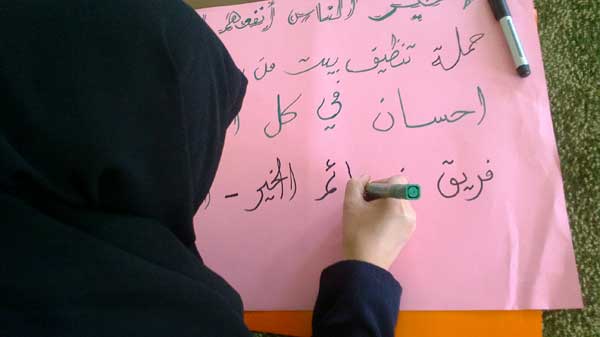 خير الناس أنفعهم
حملة تنظيف بيت من
احسان في كل
فريق الخير -